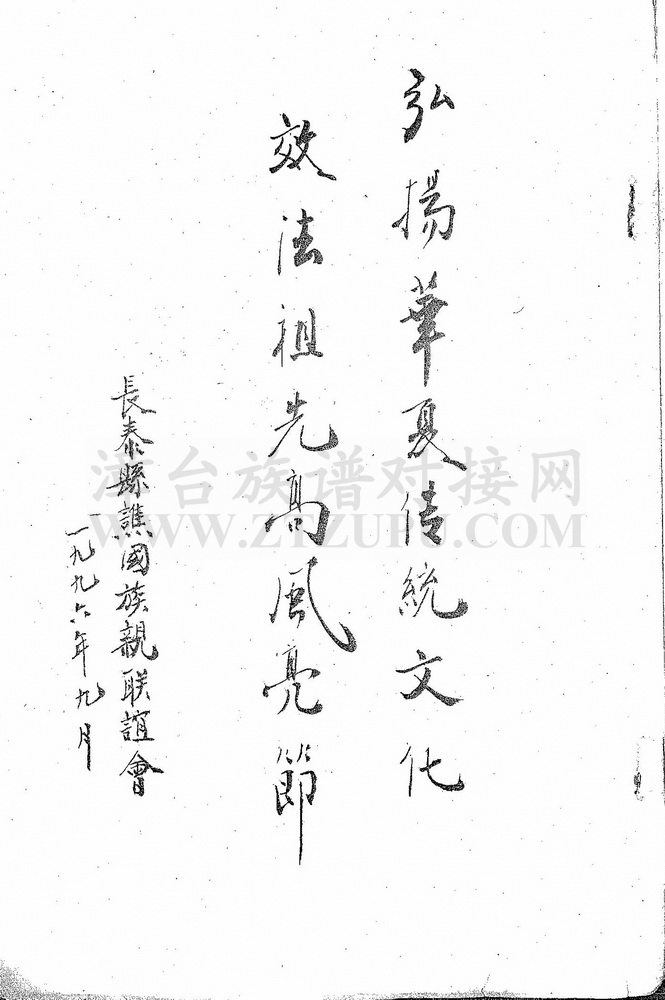 弘揚華夏传統文化
效法祖先髙風亮節
長泰縣譙國族親联誼會
一九九六年九月
漳台族谱对接网
WWW.ZTZUPU.COM